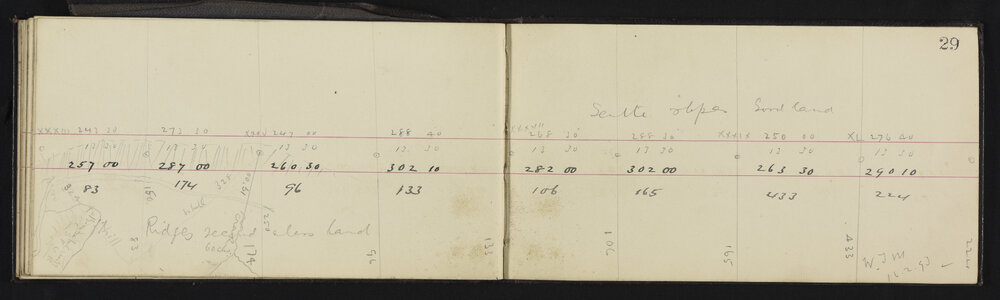 29
Good land
XXXIII 243 30 273 30 XXXV 247 00 288 40 XXXVII 268 30 288 30 XXXIX 250 00 XL 276 40
13 30 13 30 13 30 13 30 13 30 13 30 13 30 13 30
257 00 287 00 260 30 302 10 282 00 302 00 263 30 290 10
83 174 96 133 106 165 433 224
Ridges second class land
83 174 96 133 106 165 433 224
W.J.M
16.2.93